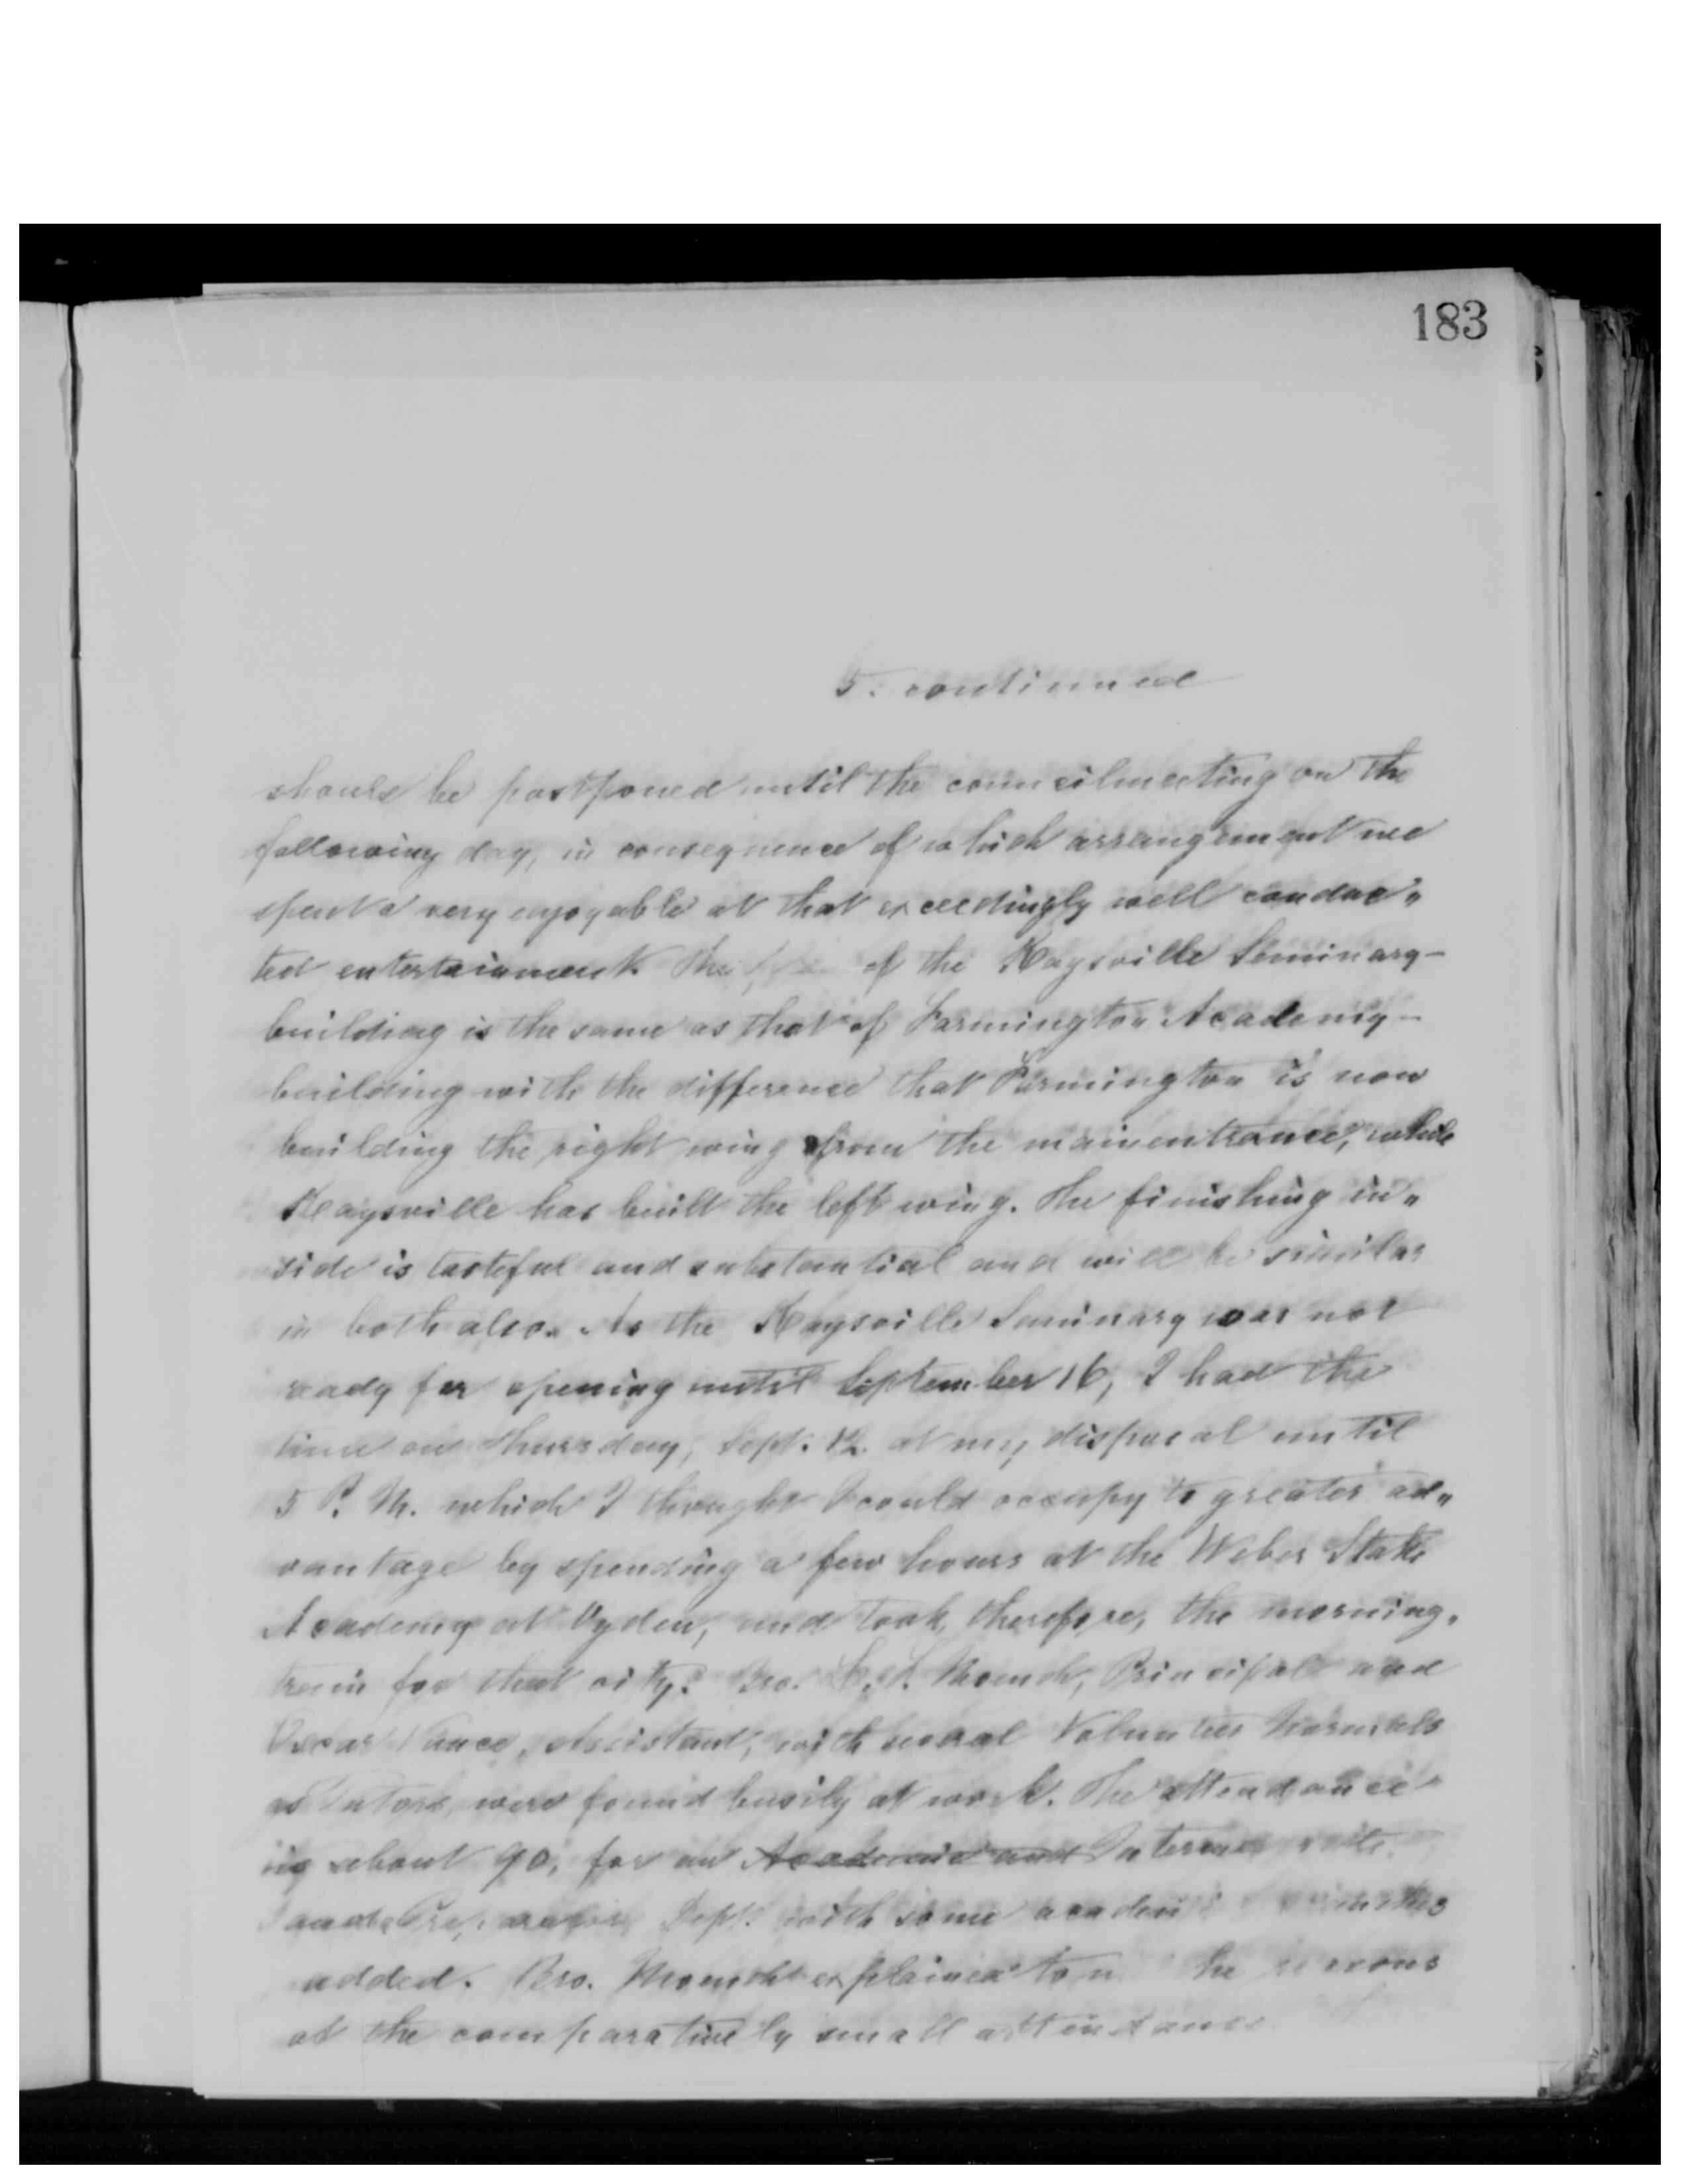 183
5. continued
should be postponed until the councilmeeting on the
following day, in consequence of which arrangement we
spent a very enjoyable at that exceedingly well conduc„
ted entertainment. The of the Kaysville Seminary-
building is the same as that of Farmington Academy-
building with the difference that Farmington is now
building the right wing from the mainentrance, while
Kaysville has built the left wing. The finishing in„
side is tasteful and substantial and will be similar
in both also. As the Kaysville Seminary was not
ready for opening until September 16, I had the
time on Thursday, Sept. 12. at my disposal until
5 P. M. which I thought I could occupy to greater ad„
vantage by spending a few hours at the Weber Stake
Academy at Ogden, and took, therefore, the morning„
train for that city. Bro. L. F. Moench, Principal and
Oscar Vance, Assistant, with several Volunteer Normals
as Tutors, were found busily at work. The attendance
is about 90, for an Academic and Intermediate
and Preparatory Dept. with some academic
added. Bro. Moench explained to me the reasons
of the comparatively small attendance